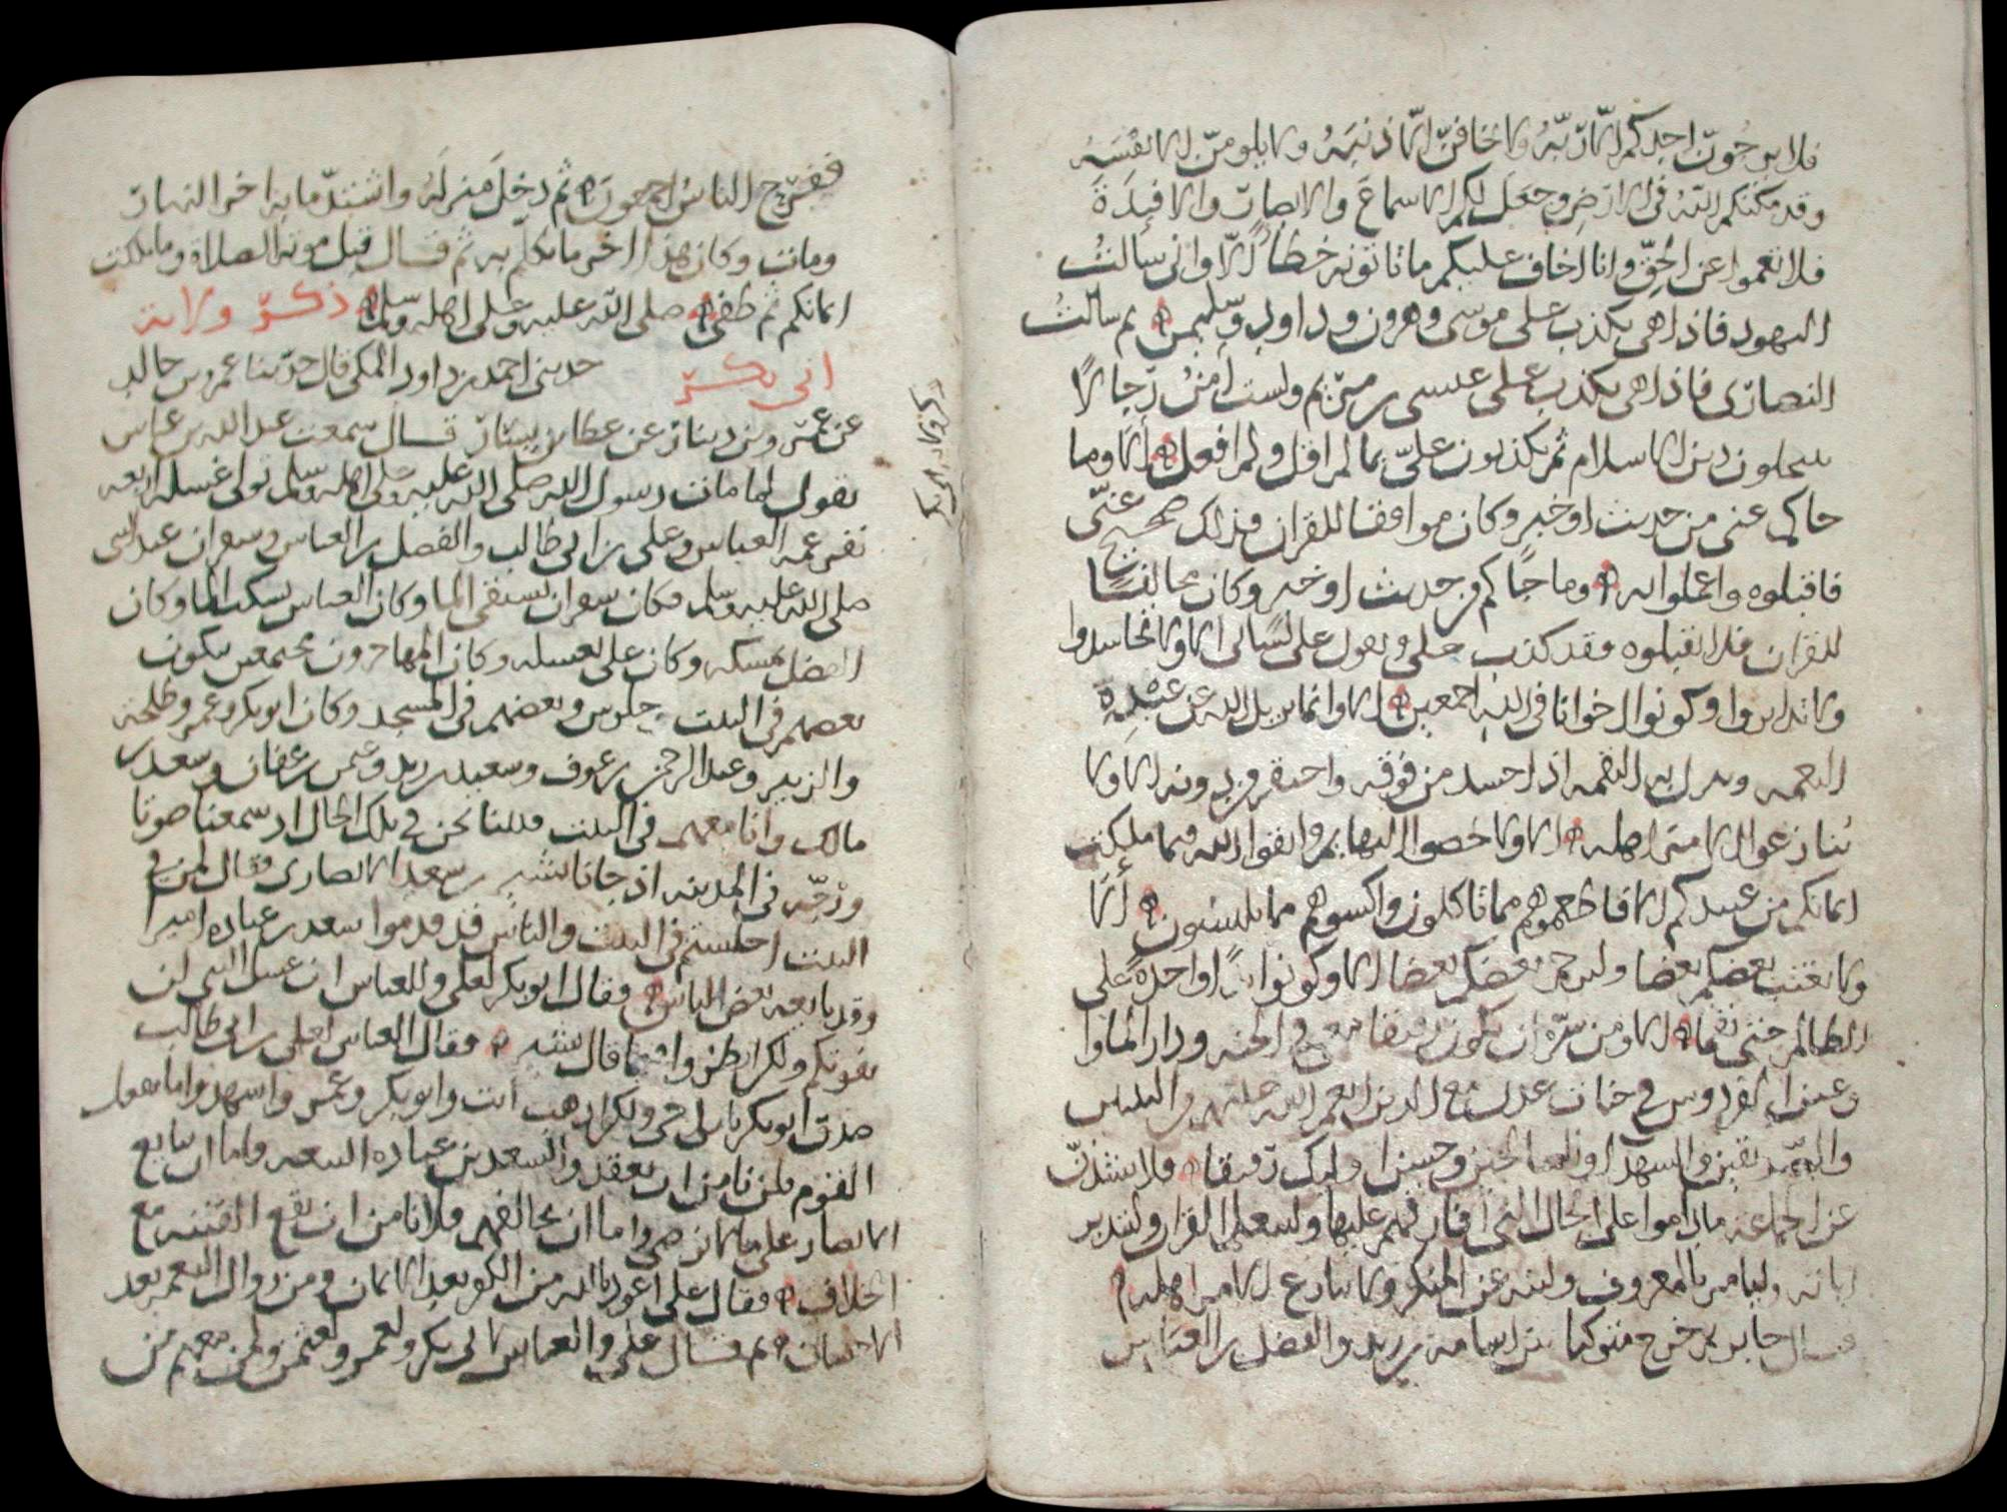 فلا يرجون احدكم الا ربه ولا يخافن الا ذنبه ولا يلومن الا نفسه
وقد مكنكم الله في الارض وجعل لكم الاسماع والابصار والافئدة
فلا تعموا عن الحق وانا اخاف عليكم ما تاتونه خطا الا واني سالت
اليهود فاذا هي تكذب على موسى وهرون وداود وسليمن ثم سالت
النصارى فاذا هي تكذب على عيسى بن مريم ولست امن رجالا
ينتحلون دين الاسلام ثم يكذبون علي بما لم اقل ولم افعل الا وما
جاكم عني من حديث او خبر وكان موافقا للقران فذلك صحيح عني
فاقبلوه واعملوا به وما جاكم من حديث او خبر وكان مخالفا
للقران فلا تقبلوه فقد كذب علي وتقول على لساني الا ولا تحاسدوا
ولا تدابروا وكونوا اخوانا في الله اجمعين الا وانما يزيل الله عن عبده
النعمه وينزل به النقمه اذا حسد من فوقه واحتقر من دونه الا ولا
تنازعوا الامر اهله الا ولا واتقوا الله فيما ملكت
ايمانكم من عبيدكم الا فاطعموهم مما تاكلون واكسوهم مما تلبسون الا
ولا يغتب بعضكم بعضا وليرحم بعضكم بعضا الا وكونوا يدا واحدة على
الظالم حتى الا ومن سره ان يكون رفيقا معي في الجنه ودار الماوا
وغرف الفردوس في جنات عدن مع الذين انعم الله عليهم من النبيين
والصديقين والشهدا والصالحين وحسن اوليك رفيقا فلا يشذن
عن الجماعه ما داموا على الحال التي افارقهم عليها وليتعلم القران وليتدبر
اياته وليامر بالمعروف ولينه عن المنكر ولا ينازع الامر اهله
قال جابر ثم خرج متوكيا بين اسامه بن زيد والفضل بن العباس
ففرح الناس اجمعون ثم دخل منزله واشتد ما به اخر النهار
ومات وكان هذا اخر ما تكلم به ثم قال قبل موته الصلاة وما ملكت
ايمانكم ثم طفي صلى الله عليه وعلى اهله وسلم ذكر ولاية
ابي بكر حدثني احمد بن داود المكي قال حدثنا عمرو بن خالد
عن عمرو بن دينار عن عطا بن يسار قال سمعت عبد الله بن عباس
يقول لما مات رسول الله صلى الله عليه وعلى اهله وسلم تولى غسله اربعه
نفر عمه العباس وعلي بن ابي طالب والفضل بن العباس وسقران عبد النبي
صلى الله عليه وسلم فكان سقران يستقي الما وكان العباس يسكب الما وكان
الفضل يمسكه وكان علي يغسله وكان المهاجرون مجتمعين يبكون
بعضهم في البيت جلوس وبعضهم في المسجد وكان ابو بكر وعمر وطلحة
والزبير وعبد الرحمن بن عوف وسعيد بن زيد وعثمن بن عفان وسعد بن
مالك وانا معهم في البيت فبينا نحن في تلك الحال اذ سمعنا صوتا
ورجه في المدينه اذ جانا بشير بن سعد الانصاري فقال لمن في
البيت اجلستم في البيت والناس قد قدموا سعد بن عباده اميرا
وقد بايعه بعض الناس فقال ابو بكر لعلي وللعباس ان غسل النبي لن
يفوتكم ولكن انظروا فيما قال بشير فقال العباس لعلي بن ابي طالب
صدق ابو بكر يابن اخي ولكن اذهب انت وابو بكر وعمر واشهدوا ما يفعل
القوم فلن نامن ان يعقدوا لسعد بن عباده البيعه واما ان نبايع
الانصار على ما لا نرضى واما ان نخالفهم فلا نامن ان تقع الفتنه مع
الخلاف فقال علي اعوذ بالله من الكفر بعد الايمان ومن زوال النعم بعد
الاحسان ثم قال علي والعباس لابي بكر ولعمر ولعثمن ولمن معهم من